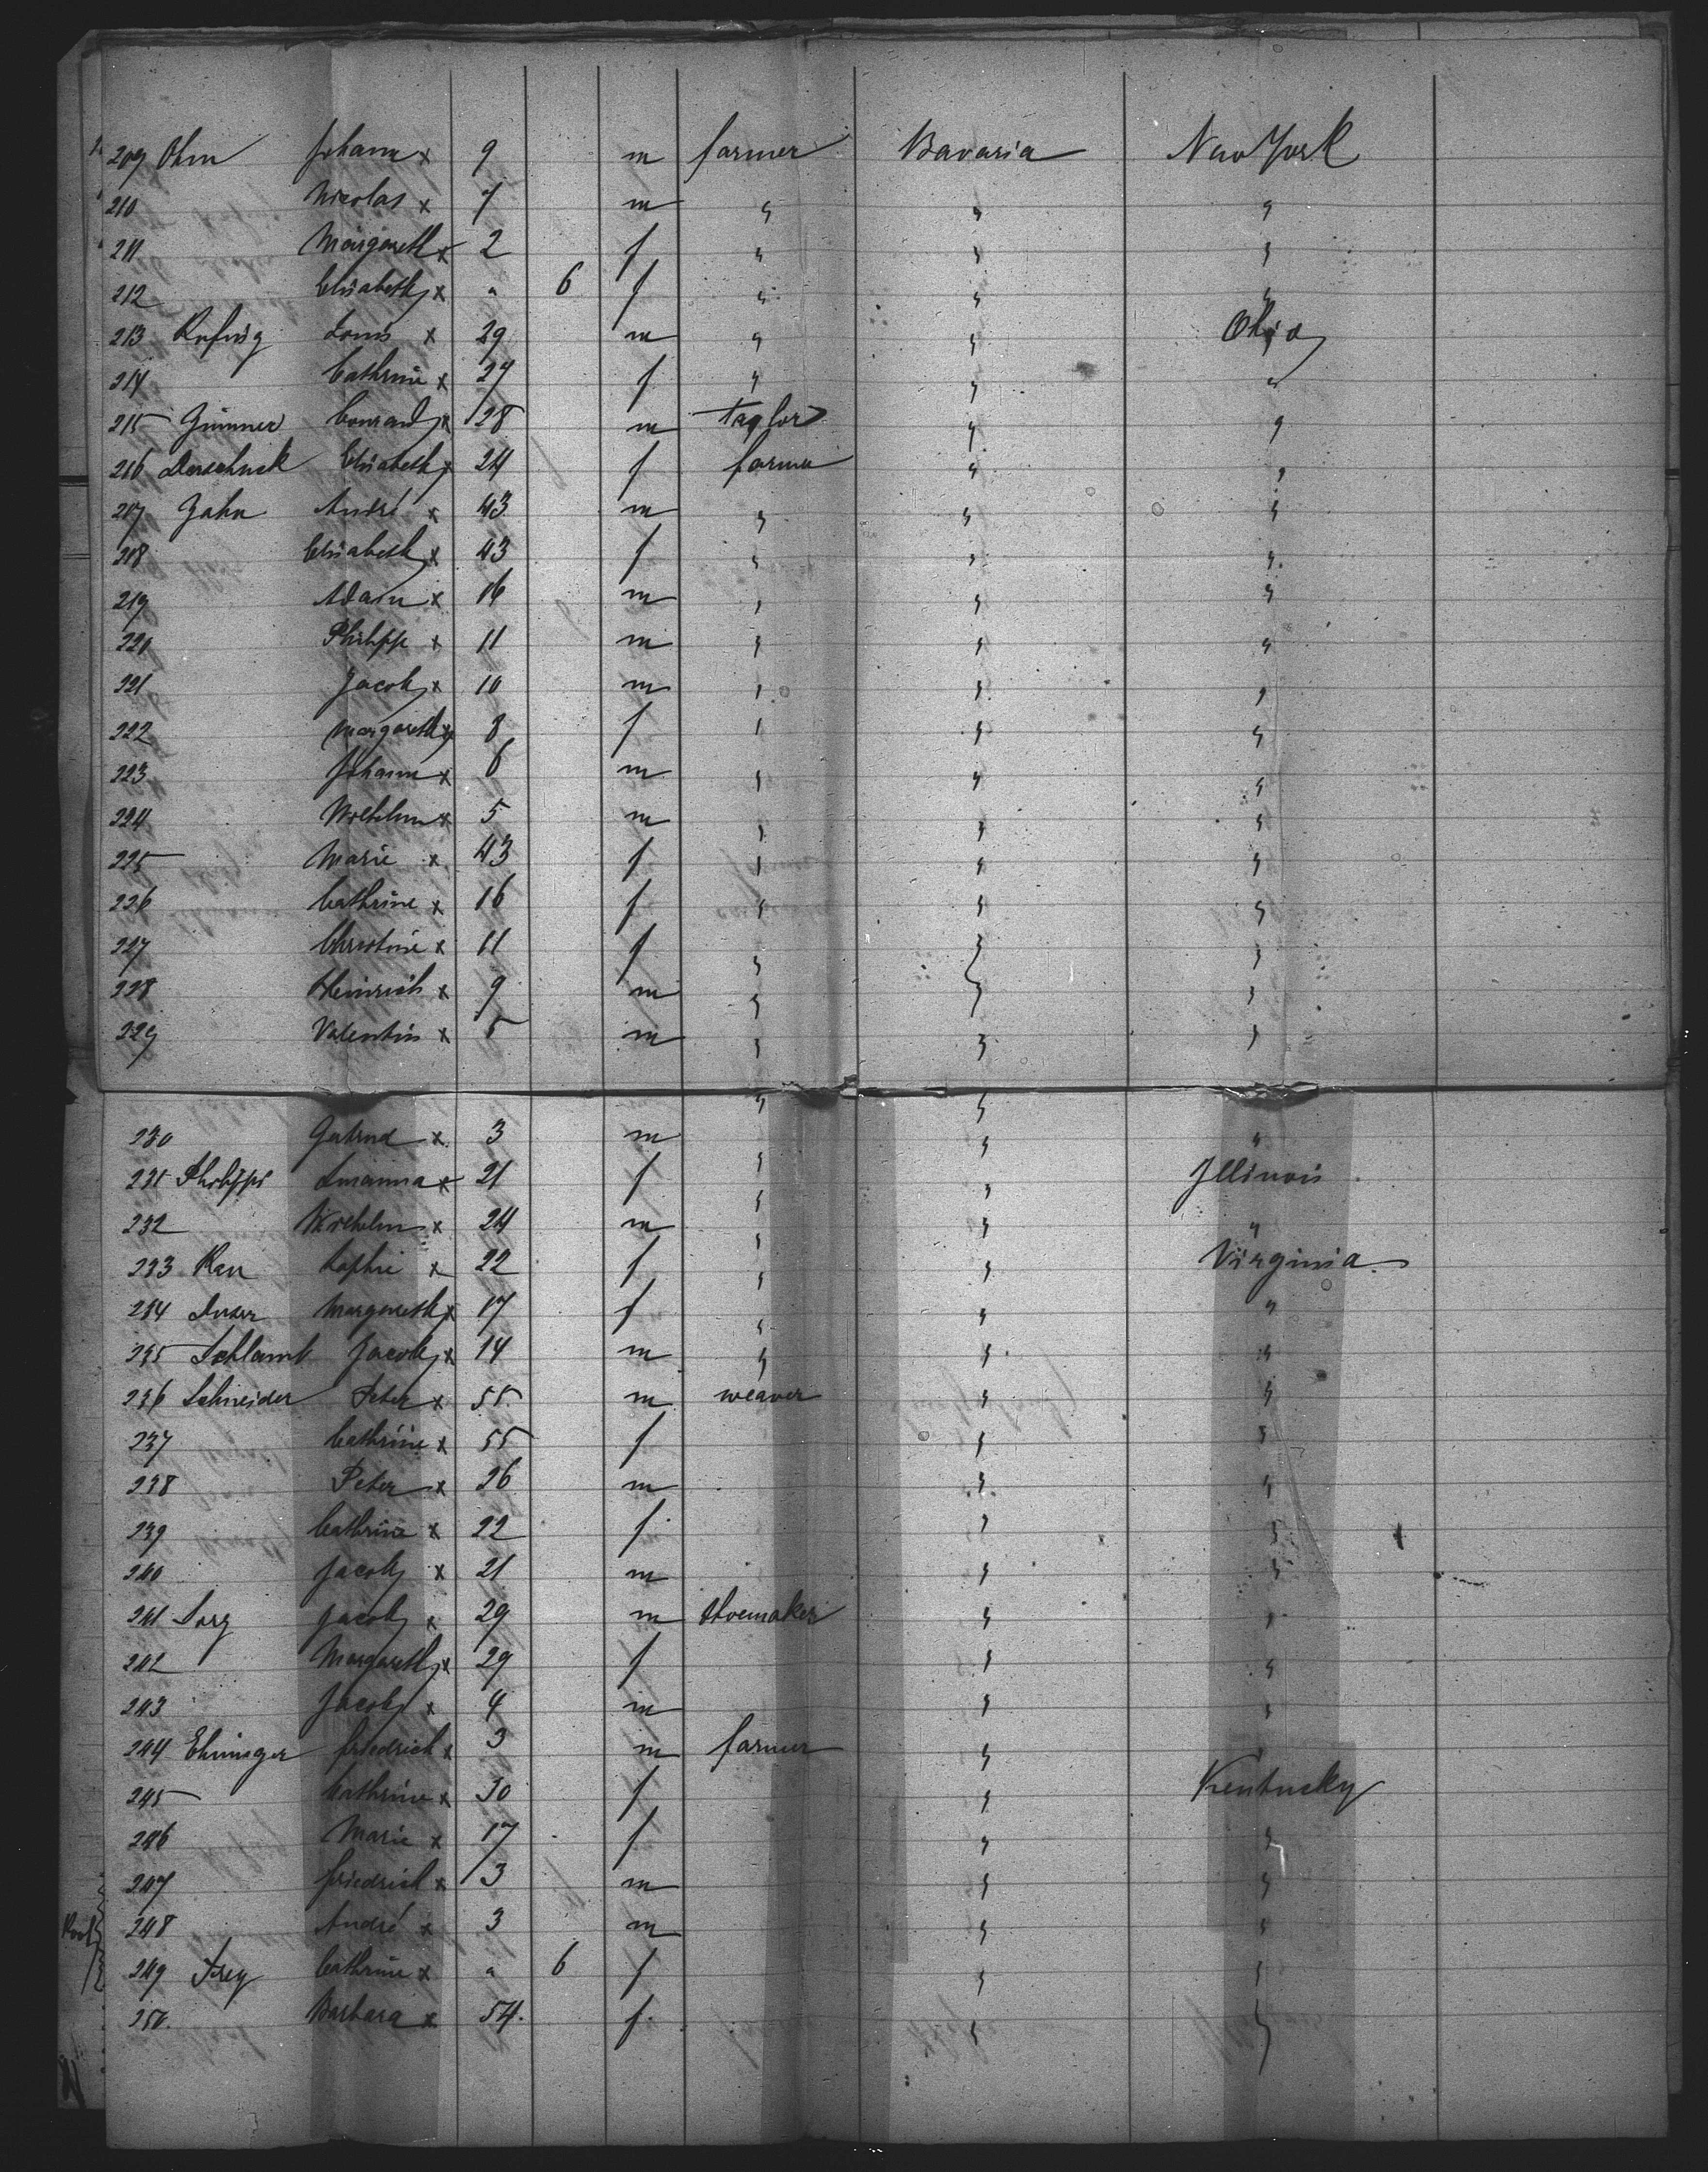 209 Ohm Johann x 9 m farmer Bavaria New York
210 Nicolas x 7 m " " "
211 Margareth x 2 f " " "
212 Elisabeth x " 6 f " " "
213 Louis x 29 m " " Ohio
214 Cathrine x 27 f " " "
215 Gimmer Conrad x 28 m taylor " "
216 Derschuck Elisabeth x 24 f farmer " "
217 Jahn André x 43 m " " "
218 Elisabeth x 43 f " " "
219 Adam x 16 m " " "
220 Philipp x 11 m " " "
221 Jacob x 10 m " " "
222 Margareth x 8 f " " "
223 Johann x 6 m " " "
224 Wilhelm x 5 m " " "
225 Marie x 43 f " " "
226 Cathrine x 16 f " " "
227 Christine x 11 f " " "
228 Heinrich x 9 m " " "
229 Valentin x 5 m " " "
230 Gertrud x 3 m " " "
231 Philipps x 21 f " " Illinois
232 Wilhelm x 24 m " " "
233 Sophie x 22 f " " Virginia
234 Margareth x 17 f " " "
235 Schlamb Jacob x 14 m " " "
236 Schneider Peter x 55 m weaver " "
237 Cathrine x 55 f " "
238 Peter x 26 m " "
239 Cathrine x 22 f " "
240 Jacob x 21 m " "
241 Sorg Jacob x 29 m Shoemaker " "
242 Margareth x 29 f " "
243 Jacob x 4 m " "
244 Ehninger Friedrich x 3 m farmer " "
245 Cathrine x 30 f " Kentucky
246 Marie x 17 f " "
247 Friedrich x 3 m " "
248 André x 3 m " "
249 Frey Cathrine x " 6 f " "
250. Barbara x 54. f. " "